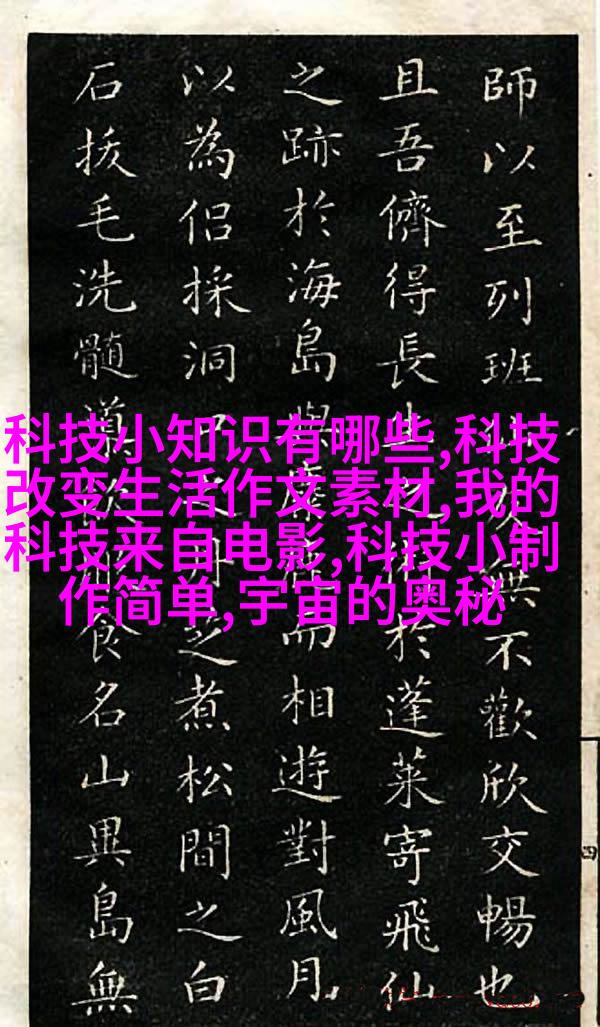 師以至列班不歡欣交暢也
且吾儕得長生於蓬萊寄飛仙
之跡於海島與麋鹿而相遊對風月
以為侶採洞之煮松間之白
石拔毛洗髓食名山異島無
科技小知识有哪些,科技
改变生活作文素材,我的
科技来自电影,科技小制
作简单,宇宙的奥秘
四